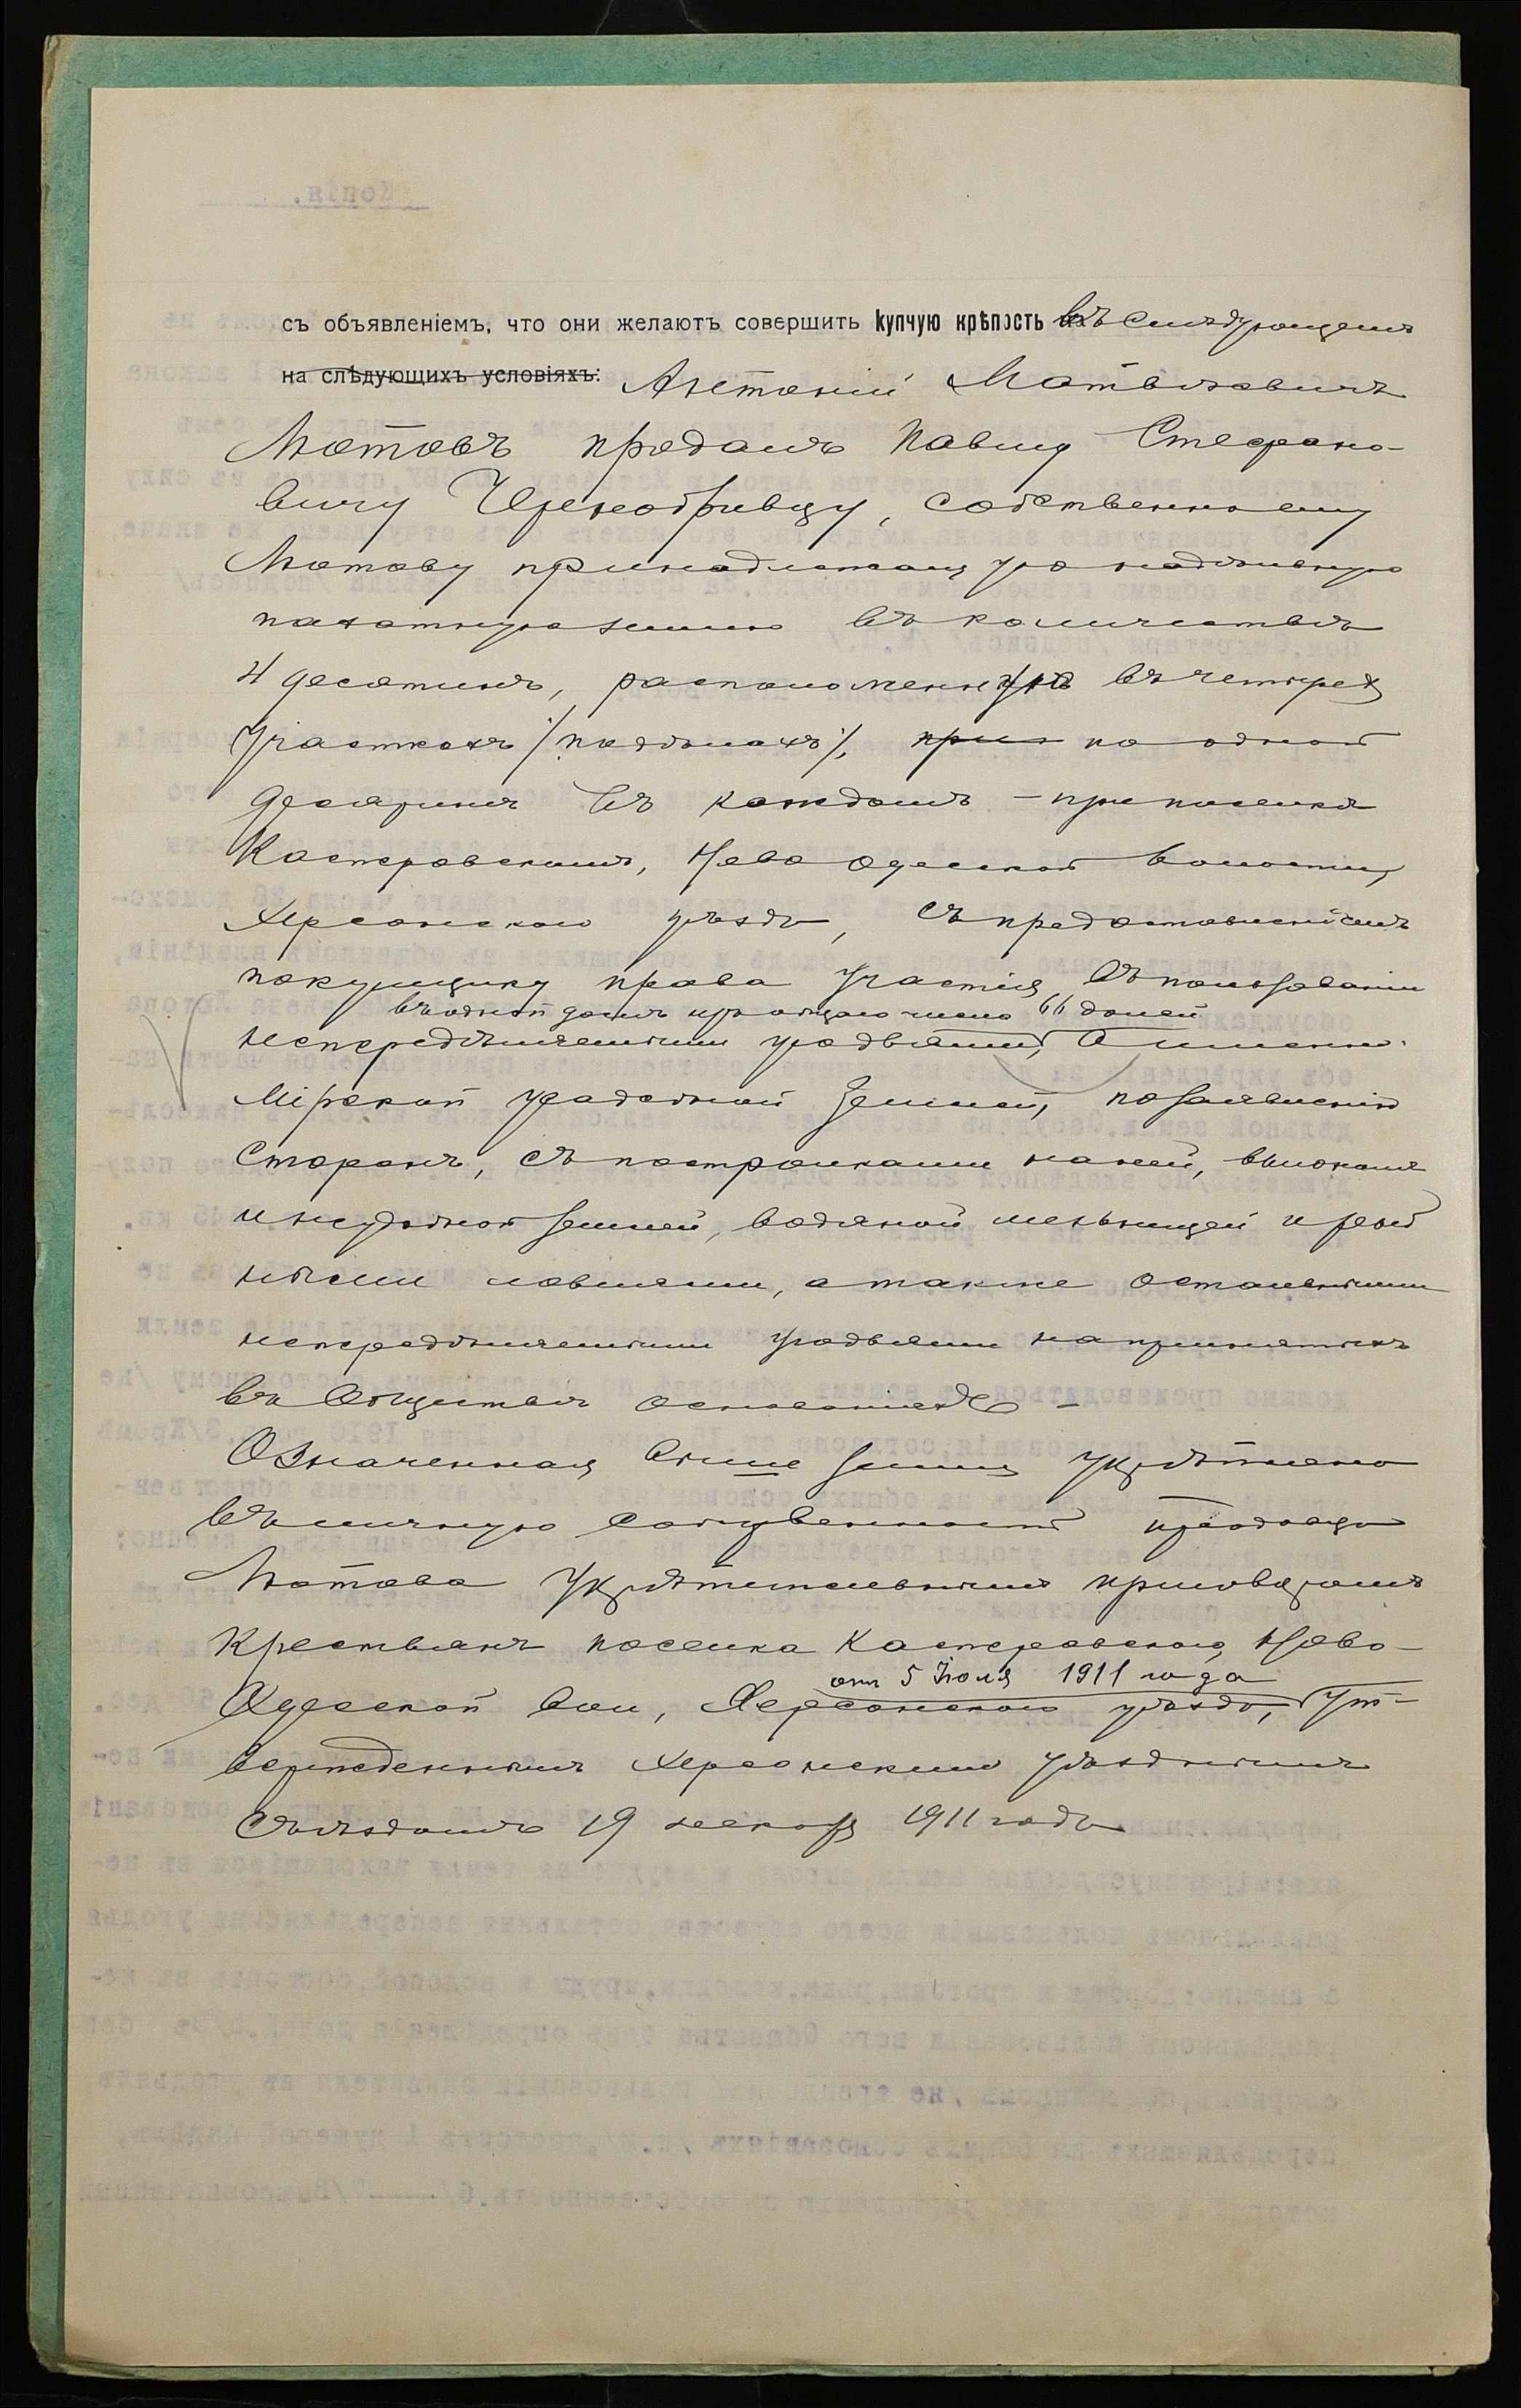 съ объявленіемъ, что они желаютъ совершить купчую крѣпость въ слѣдующемъ
на слѣдующихъ условіяхъ: Антоній Матвѣевичъ
Лютовъ продалъ Павлу Стефано-
вичу Чернобривцу, собственную ему
Лютову принадлежащую надѣльную
пахатную землю въ количествѣ
4 десятинъ, расположенную въ четырехъ
участкахъ /подѣлахъ/, по одной
десятинѣ въ каждомъ – при поселкѣ
Касперовскомъ, Ново Одесской волости,
Херсонскаго уѣзда, съ предоставленіемъ
покупщику права участія въ пользованіи
въ одной долѣ изъ общаго числа 66 долей
непередѣляемыми угодьями, а именно:
Мірской усадебной землей, по заявленію
сторонъ, съ постройками на ней, выгономъ
и неудобной землей, водяной мельницей и рыб
ными ловлями, а также остальными
непередѣляемыми угодьями на принятыхъ
въ обществѣ основаніяхъ –
Означенная выше земля укрѣплена
въ личную собственность продавца
Лютова укрѣпительнымъ приговоромъ
крестьянъ поселка Касперовскаго, Ново-
отъ 5 Іюля 1911 года
Одесской вол, Херсонскаго уѣзда, ут-
вержденнымъ Херсонскимъ уѣзднымъ
съѣздомъ 19 1911 года